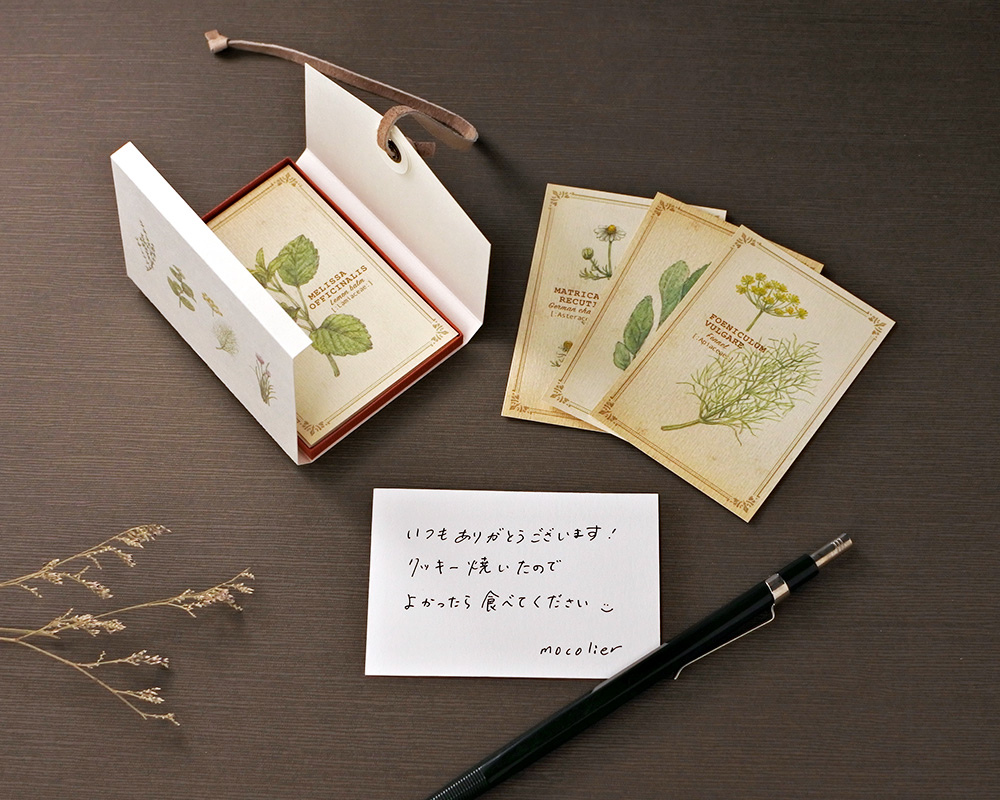 MELISSA
OFFICINALIS
Lemon balm
[:Lamiaceae:]
MATRICA
RECUTI
German cha
[:Asterac
FOENICULUM
VULGARE
Funnel
[:Apiaceae
いつもありがとうございます!
クッキー焼いたので
よかったら食べてください
mocolier